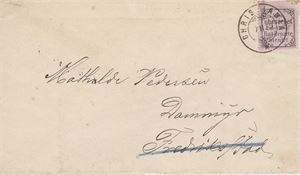 CHRISTIANIA
Mathilde Pedersen
Dammyr
Fredriksstad